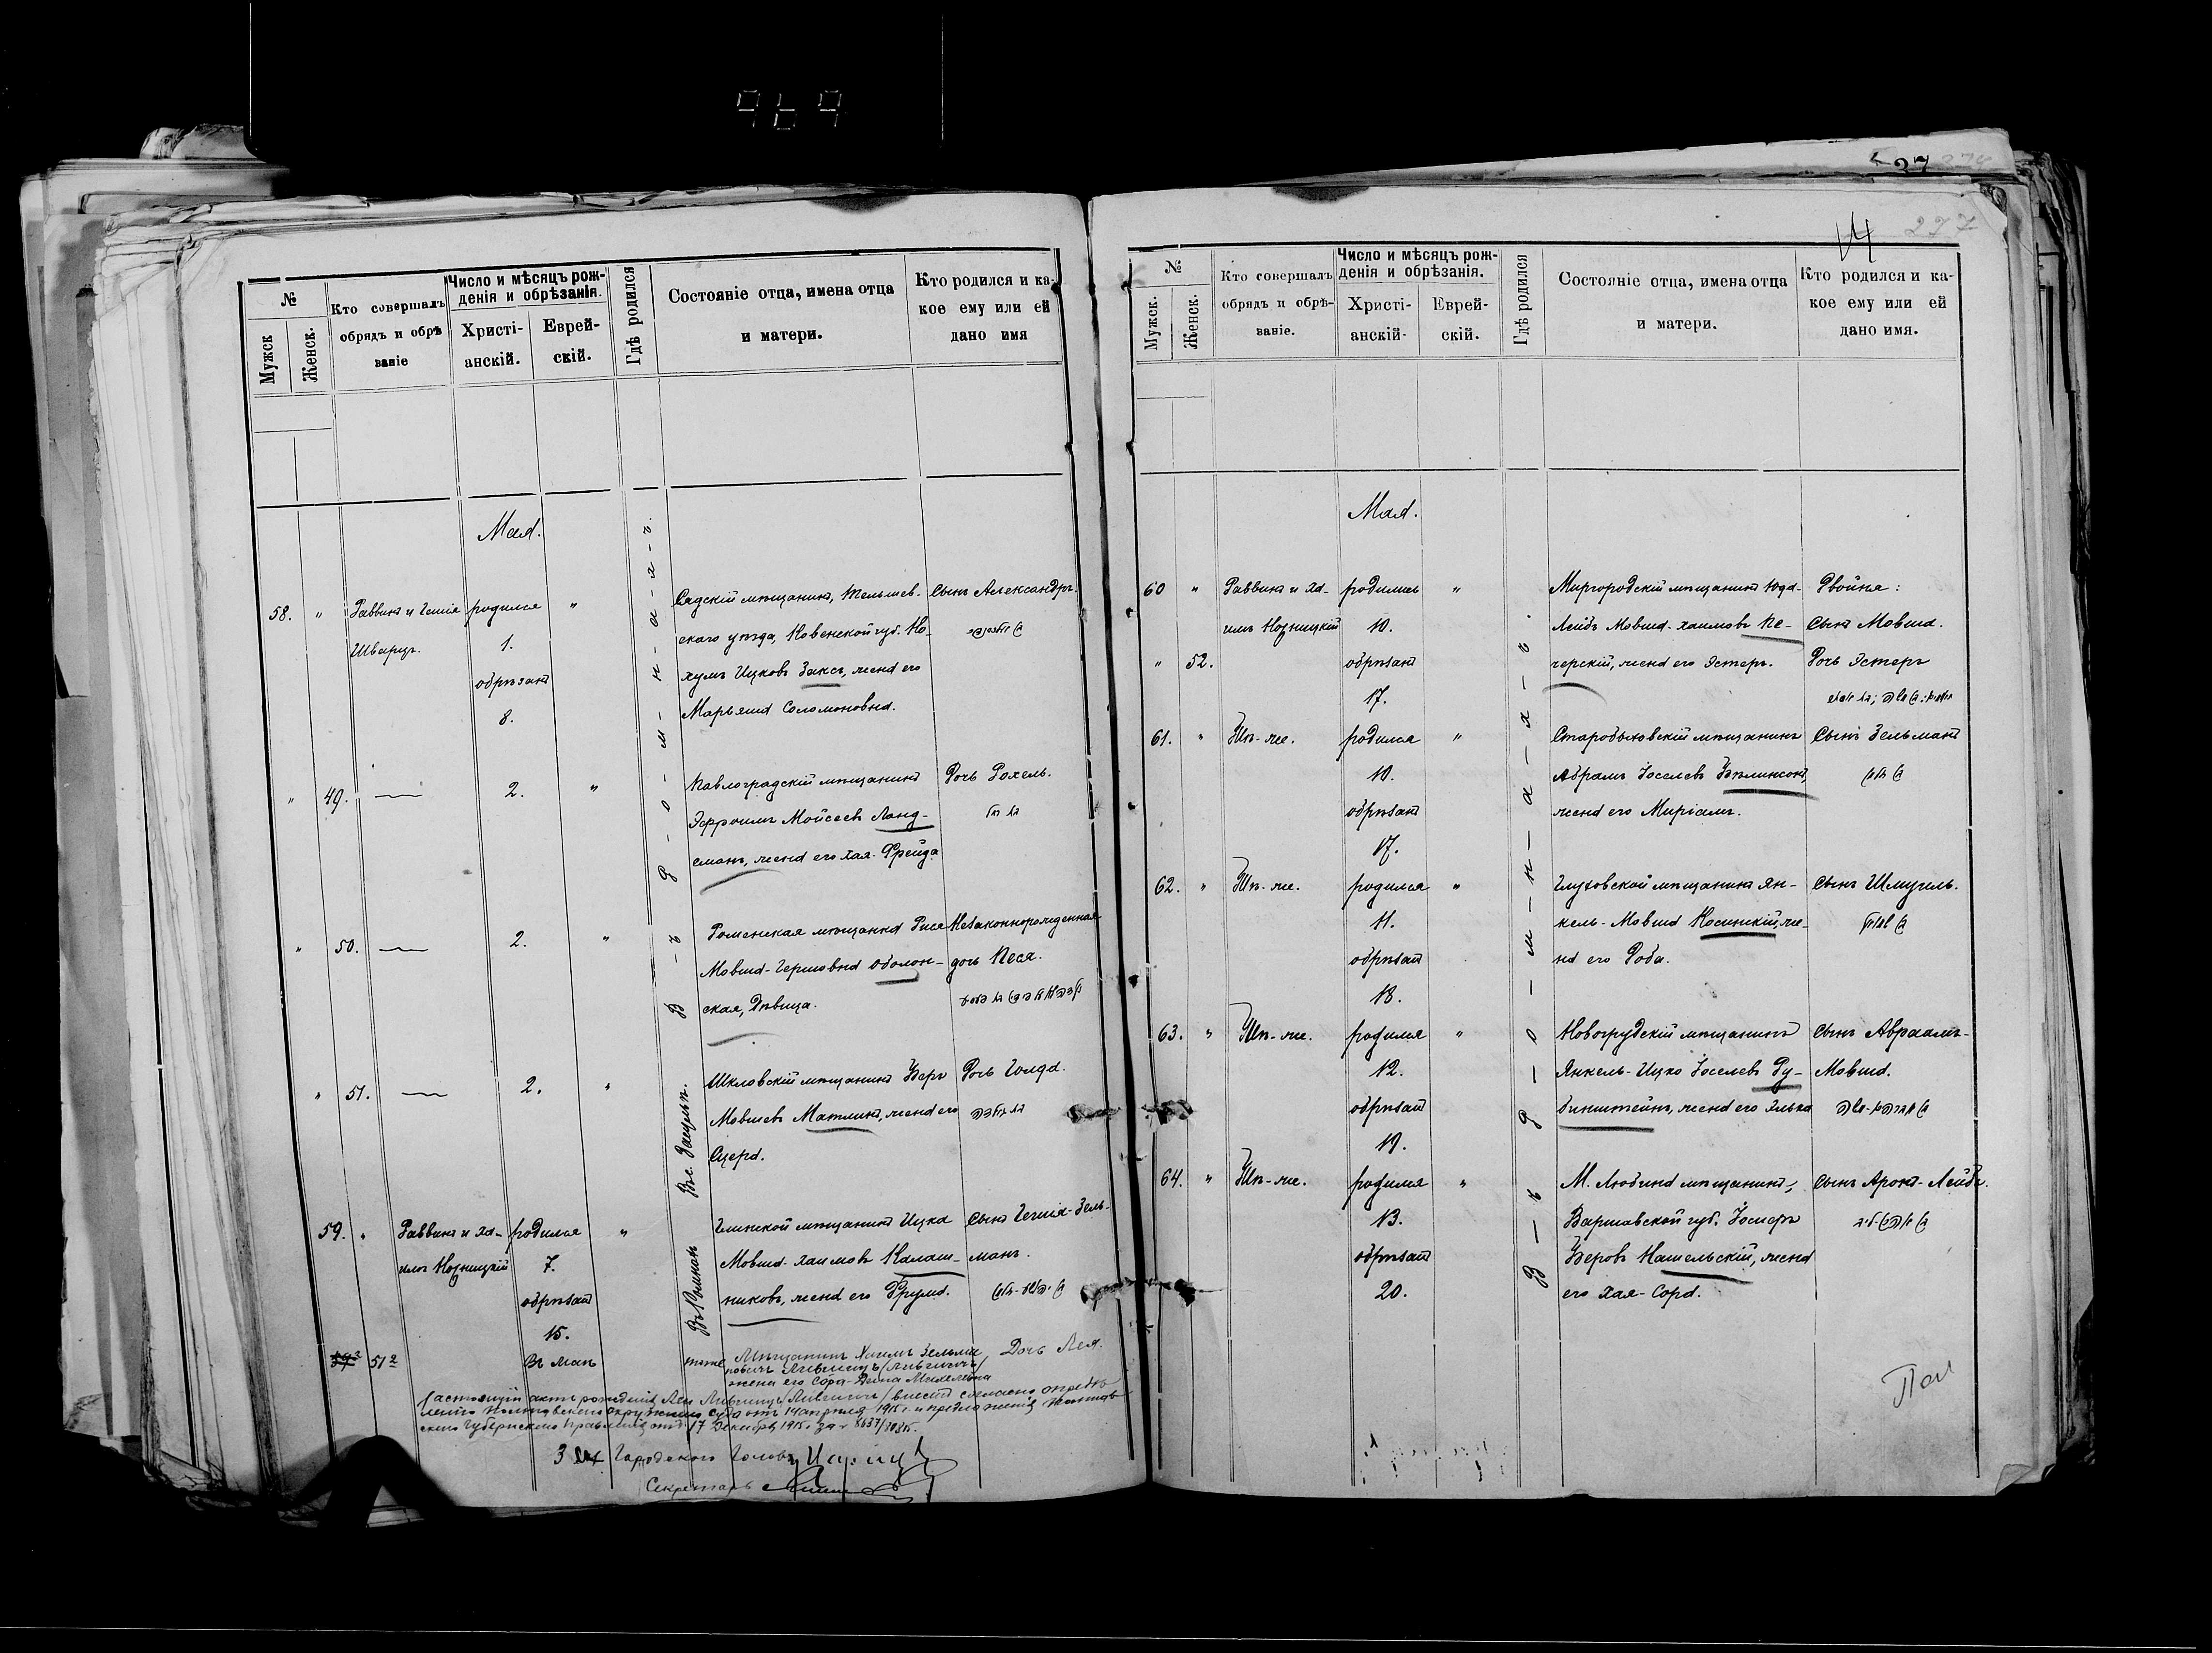 969
№
Мужск
Женск.
Кто совершалъ
обрядъ и обрѣ
заніе
Число и мѣсяцъ рож-
денія и обрѣзанія.
Христі-
анскій.
Еврей-
скій.
Гдѣ родился
Состояніе отца, имена отца
и матери.
Кто родился и ка-
кое ему или ей
дано имя
Мая.
В-ъ Р-о-м-н-а-х-ъ.
58. " Раввинъ и Гешіе родился "
Шварцъ. 1.
обрѣзанъ
8.
Садскій мѣщанинъ, Тельшев-
скаго уѣзда, Ковенской губ. Но-
хумъ Ицковъ Заксъ, жена его
Марьяша Соломоновна.
Сынъ Александръ.
" 49. — 2. "
Павлоградскій мѣщанинъ
Эфроимъ Мойсеевъ Ланд-
сманъ, жена его Хая-Фрейда
Дочь Рохель.
" 50. — 2. "
Роменская мѣщанка Рися
Мовша-Гершовна Оболон-
ская, дѣвица.
Незаконнорожденная
дочь Песя.
" 51. — 2. "
Шкловскій мѣщанинъ Беръ
Мовшевъ Матлинъ, жена его
Сцера.
Дочь Голда.
59. " Раввинъ и Ха- родился "
имъ Нозницкій 7.
обрѣзанъ
15.
Въ Ромнахъ
Глинской мѣщанинъ Ицка
Мовша-Хаимовъ Калаш-
никовъ, жена его Фрума.
Сынъ Гешіе-Зель-
манъ.
51²
Въ маѣ
тоже
Мѣщанинъ Хаимъ Зельма
новичъ Лившицъ /Лившичъ/
жена его Сора-Двина Михелевна
Дочь Лея.
Настоящій актъ рожденія Леи Лившицъ /Лившичъ/ внесенъ согласно опредѣ
ленію Полтавскаго окружнаго суда отъ 14 апрѣля 1915 г. и предложенія Полтав
скаго Губернскаго Правленія отъ 17 Декабря 1915 г за №
Городского Головы
Секретарь
14
277
№
Мужск.
Женск.
Кто совершалъ
обрядъ и обрѣ-
заніе.
Число и мѣсяцъ рож-
денія и обрѣзанія.
Христі-
анскій.
Еврей-
скій.
Гдѣ родился
Состояніе отца, имена отца
и матери.
Кто родился и ка-
кое ему или ей
дано имя.
Мая.
В-ъ Р-о-м-н-а-х-ъ.
60 " Раввинъ и Ха- родились "
имъ Нозницкій 10.
" 52. обрѣзанъ
17.
Миргородскій мѣщанинъ Юда-
Лейбъ Мовша-Хаимовъ Пе-
черскій, жена его Эстеръ.
Двойня:
Сынъ Мовша.
Дочь Эстеръ
61. " Тѣ-же. родился "
10.
обрѣзанъ
17.
Старобыховскій мѣщанинъ
Абрамъ Іоселевъ Бѣлинсонъ
жена его Миріамъ.
Сынъ Зельманъ
62. " Тѣ-же. родился "
11.
обрѣзанъ
18.
Глуховской мѣщанинъ Ян-
кель-Мовша Косинскій, же-
на его Роба.
Сынъ Шмуель.
63. " Тѣ-же. родился "
12.
обрѣзанъ
19.
Новогрудскій мѣщанинъ
Янкель-Ицко Іоселевъ Ру-
бинштейнъ, жена его Элька
Сынъ Авраамъ-
Мовша.
64. " Тѣ-же. родился "
13.
обрѣзанъ
20.
М. Любина мѣщанинъ,
Варшавской губ. Іосифъ
Беровъ Нашельскій, жена
его Хая-Сора.
Сынъ Аронъ-Лейбъ.